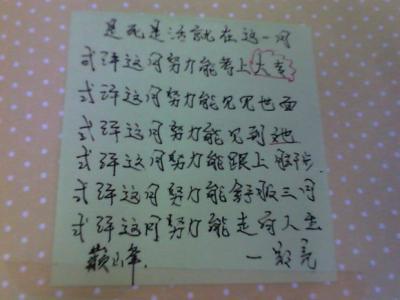 是死是活就在这一月
或许这月努力能考上大专
或许这月努力能见见世面
或许这月努力能见到她
或许这月努力能跟上脚步
或许这月努力能舒服三月
或许这月努力能走向人生
巅峰. 一